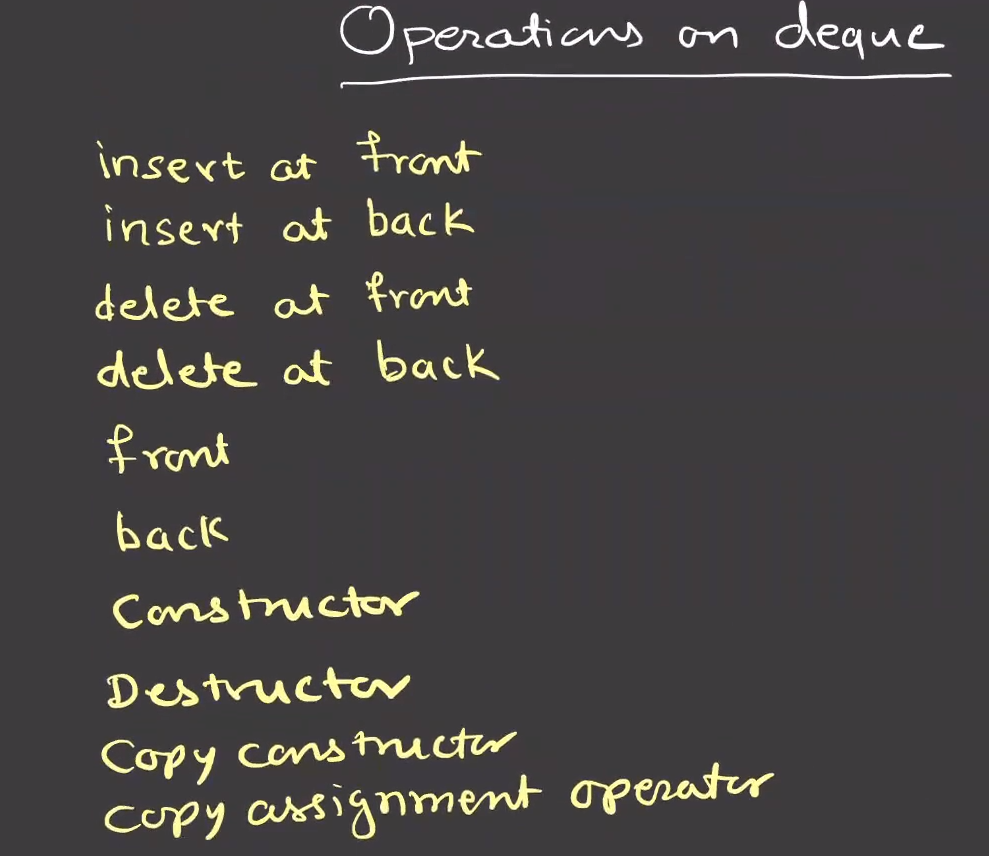 Operations on deque
insert at front
insert at back
delete at front
delete at back
front
back
Constructor
Destructor
Copy constructor
copy assignment operator